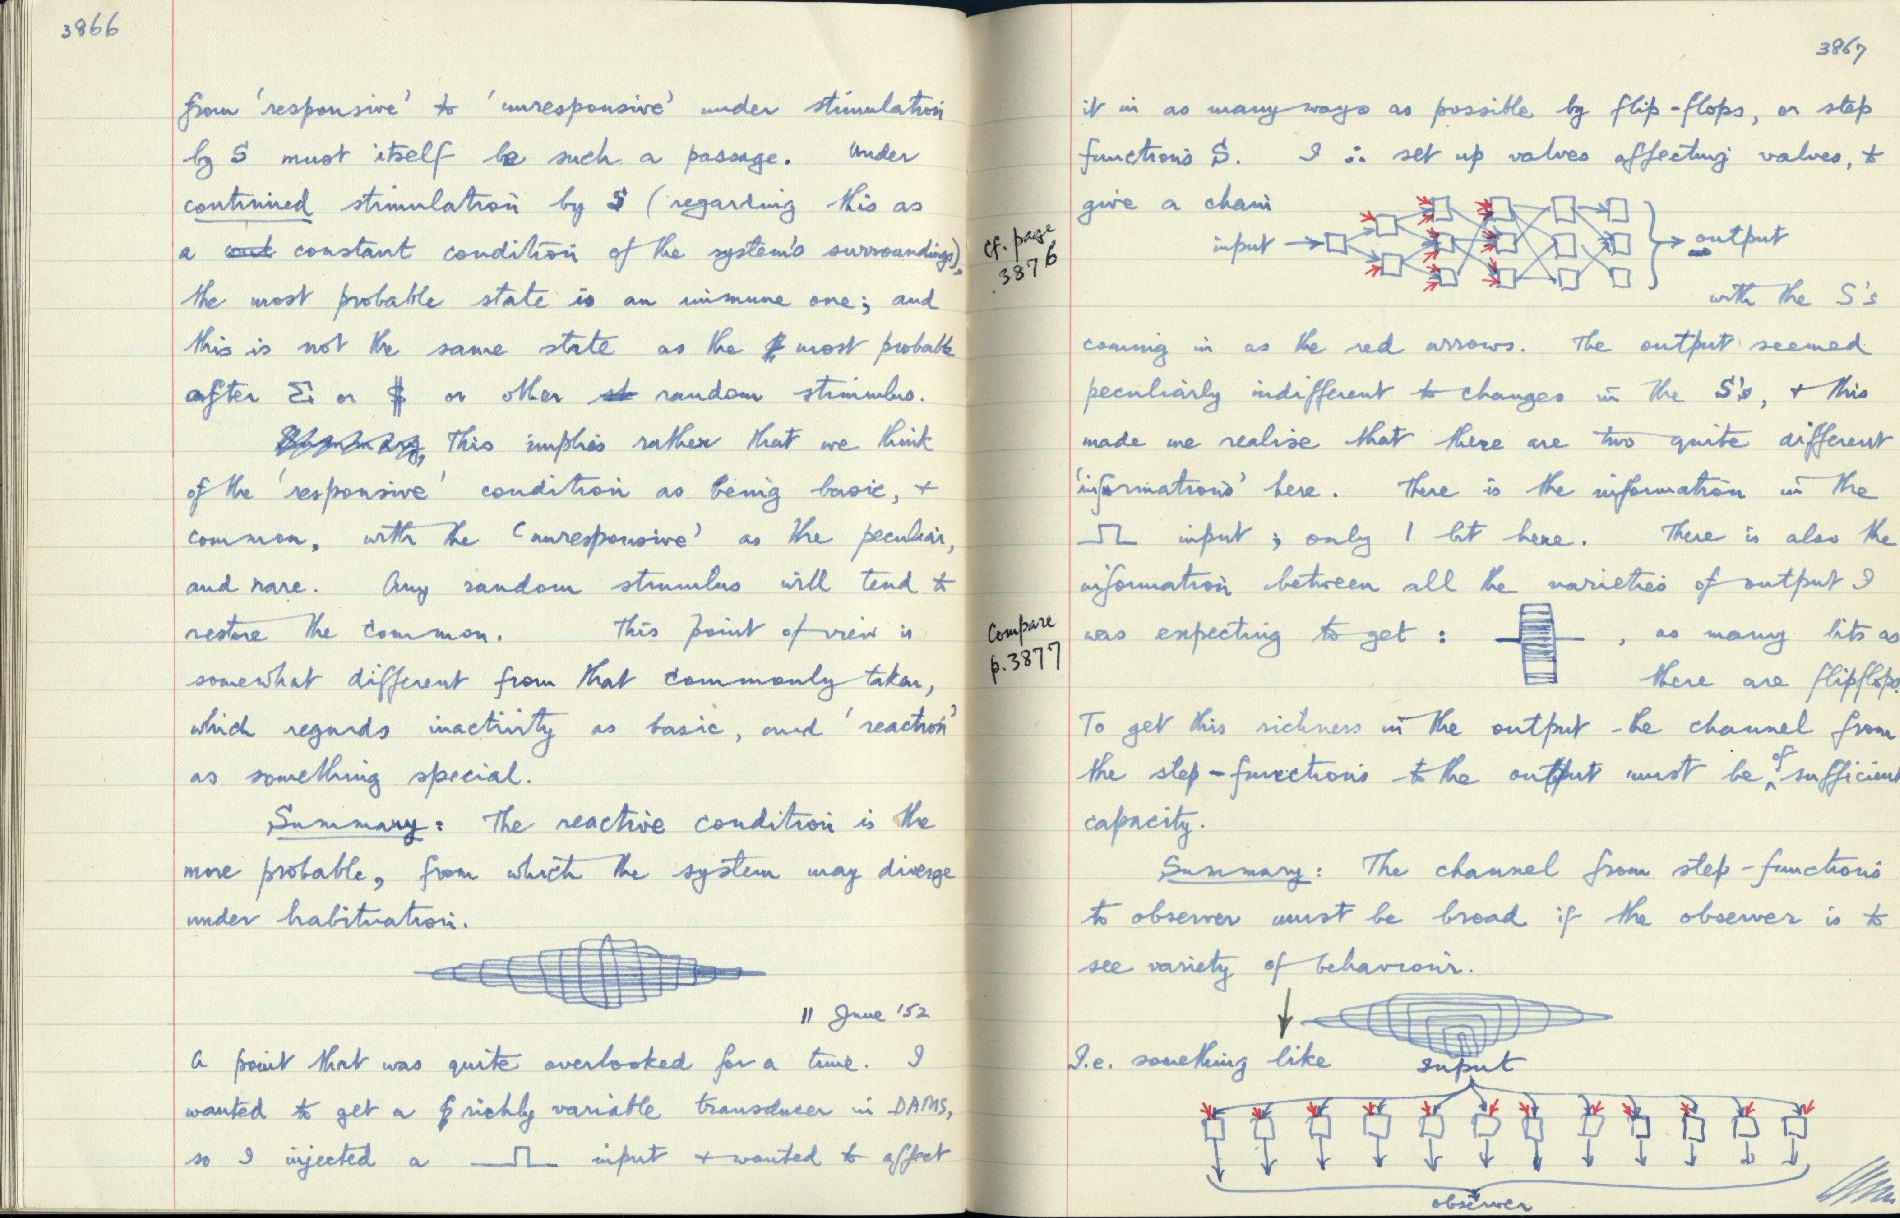 3866
from 'responsive' to 'unresponsive' under stimulation
by S must itself be such a passage. Under
continued stimulation by S (regarding this as
a constant condition of the system's surroundings),
the most probable state is an immune one; and
this is not the same state as the most probable
after Σ or $ or other random stimulus.
This implies rather that we think
of the 'responsive' condition as being basic, +
common, with the 'unresponsive' as the peculiar,
and rare. Any random stimulus will tend to
restore the common. This point of view is
somewhat different from that commonly taken,
which regards inactivity as basic, and 'reaction'
as something special.
Summary: The reactive condition is the
more probable, from which the system may diverge
under habituation.
11 June '52
A point that was quite overlooked for a time. I
wanted to get a richly variable transducer in DAMS,
so I injected a input + wanted to affect
3867
it in as many ways as possible by flip-flops, or step
functions S. I ∴ set up valves affecting valves, to
give a chain
input
output
cf. page
3876
with the S's
coming in as the red arrows. The output seemed
peculiarly indifferent to changes in the S's, + this
made me realise that there are two quite different
'informations' here. There is the information in the
input; only 1 bit here. There is also the
information between all the varieties of output I
was expecting to get: , as many bits as
there are flipflops
Compare
p.3877
To get this richness in the output the channel from
the step-functions to the output must be of sufficient
capacity.
Summary: The channel from step-functions
to observer must be broad if the observer is to
see variety of behaviour.
I.e. something like
input
observer